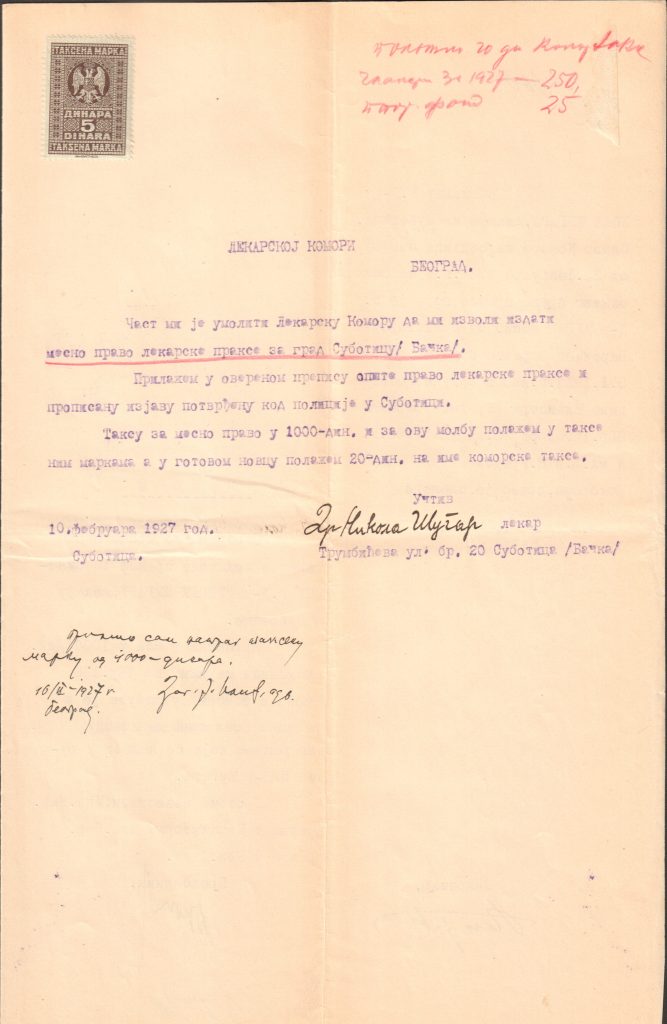 ТАКСЕНА МАРКА
ДИНАРА
5
DINARA
TAKSENA MARKA
за 1927 — 250,
25
ЛЕКАРСКОЈ КОМОРИ
БЕОГРАД.
Част ми је умолити Лекарску Комору да ми изволи издати
месно право лекарске праксе за град Суботицу/ Бачка/.
Прилажем у овереном препису опште право лекарске праксе и
прописану изјаву потврђену код полиције у Суботици.
Таксу за месно право у 1000-дин. и за ову молбу полажем у таксе
ним маркама а у готовом новцу полажем 20-дин. на име коморске таксе.
Учтив
10.фебруара 1927 год. Др Никола Шугар лекар
Суботица. Трумбићева ул. бр. 20 Суботица /Бачка/
примио сам натраг таксену
марку од 1000-динара.
16/II-1927 г.
Београд.